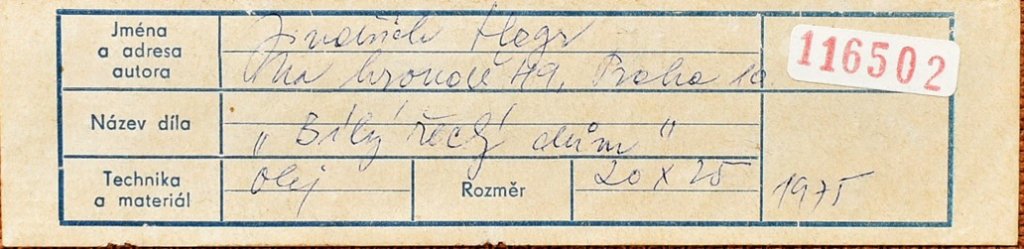 Jména
a adresa
autora
Jindřich Hegr
Na hroudě 49, Praha 10
116502
Název díla
„Bílý řecký dům"
Technika
a materiál
olej
Rozměr
20 x 25
1975